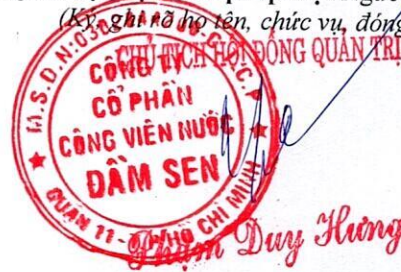 (Ký, ghi rõ họ tên, chức vụ, đóng
CHỦ TỊCH HỘI ĐỒNG QUẢN TRỊ
M.S.D.N:03
C.T.C.P
CÔNG TY
CỔ PHẦN
CÔNG VIÊN NƯỚC
ĐẦM SEN
QUẬN 11 - HỒ CHÍ MINH
Phạm Duy Hưng